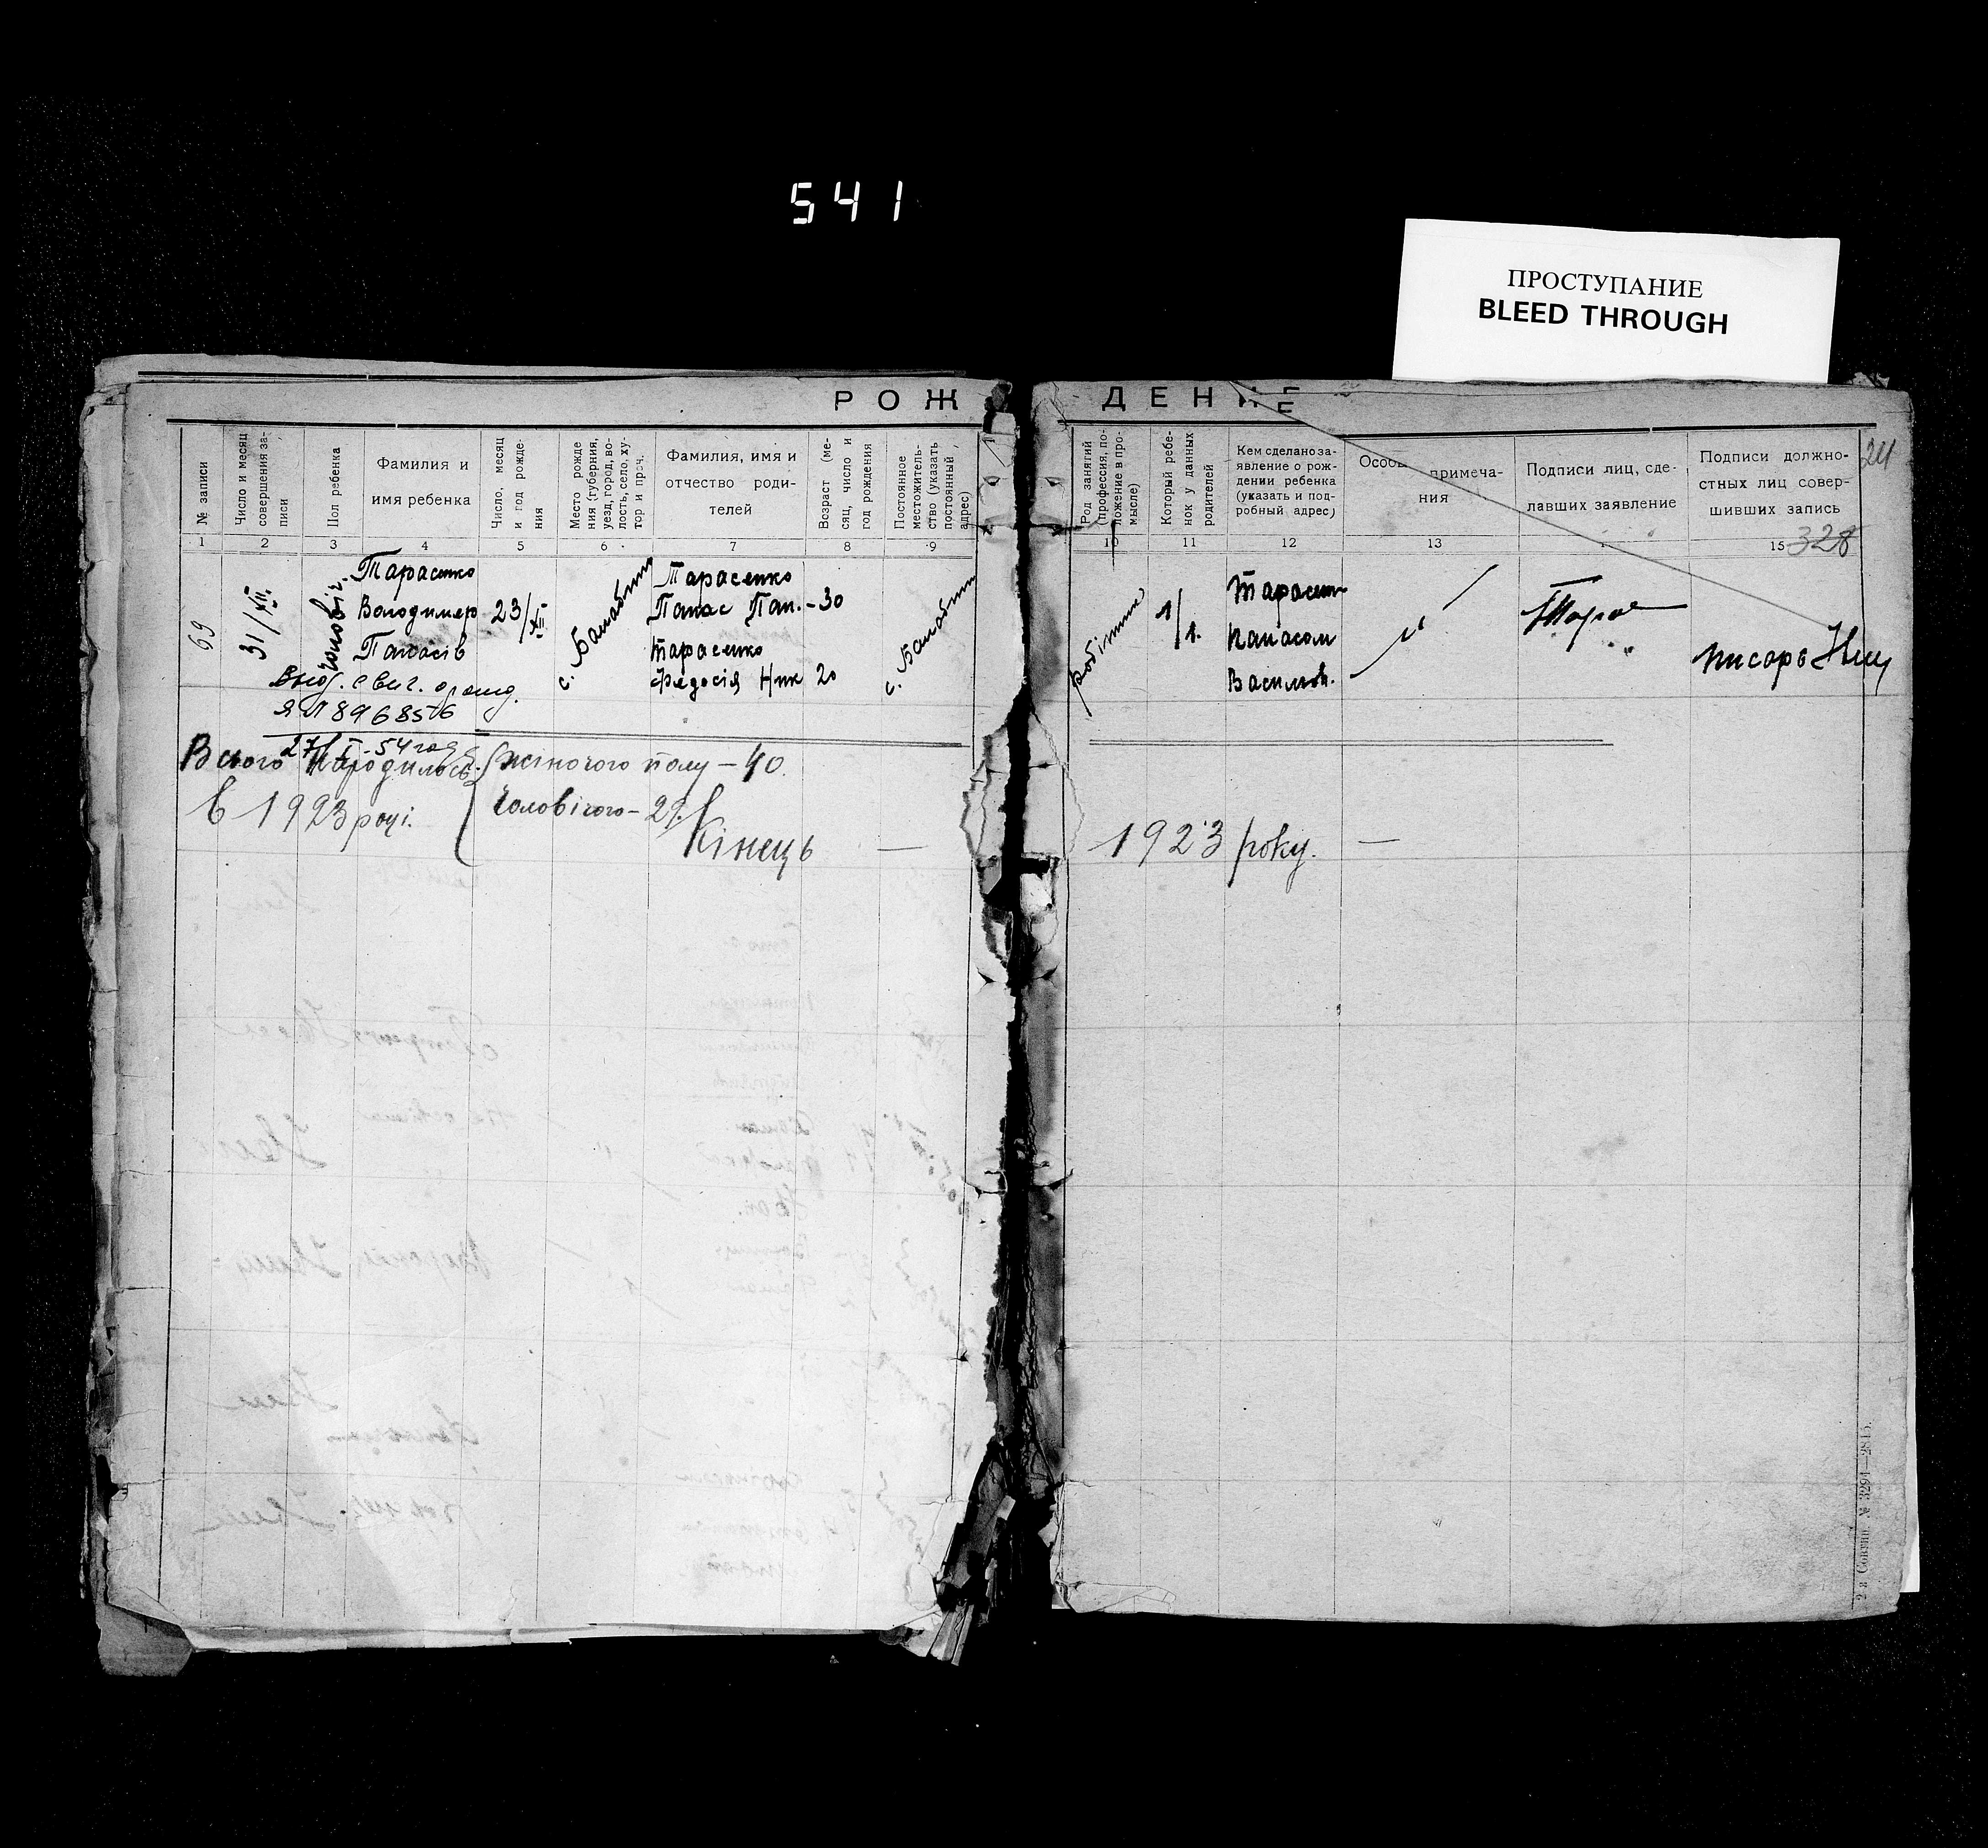 541
ПРОСТУПАНИЕ
BLEED THROUGH
РОЖДЕНИЕ
24
№ записи
Число и месяц совершения за-
писи
Пол ребенка
Фамилия и
имя ребенка
Число, месяц
и год рожде-
ния
Место рожде
ния (губерния,
уезд, город, во-
лость, село, ху-
тор и проч.
Фамилия, имя и
отчество роди-
телей
Возраст (ме-
сяц, число и
год рождения
Постоянное
местожитель-
ство (указать
постоянный
адрес)
Род занятий
(профессия, по-
ложение в про-
мысле)
Который ребе-
нок у данных
родителей
Кем сделано за-
явление о рож-
дении ребенка
(указать и под-
робный адрес)
примеча-
ния
Подписи лиц, сде-
лавших заявление
Подписи должно-
стных лиц совер-
шивших запись
1 2 3 4 5 6 7 8 9 10 11 12 13 15
328
69
31/XII
чоловіч.
Тарасенко
Володимер
Панасів
23/XII
с.
Тарасенко
Панас Пан. - 30
Тарасенко
Федосія Ник 20
с.
1/1.
Панасом
писарь
ЯЛ 896856
27/I-54 год
Всього Народилось
в 1923 році.
жіночого полу - 40.
Чоловічого - 29.
Кінець — 1923 року. —
2-я Совтип. № 3291—2815.